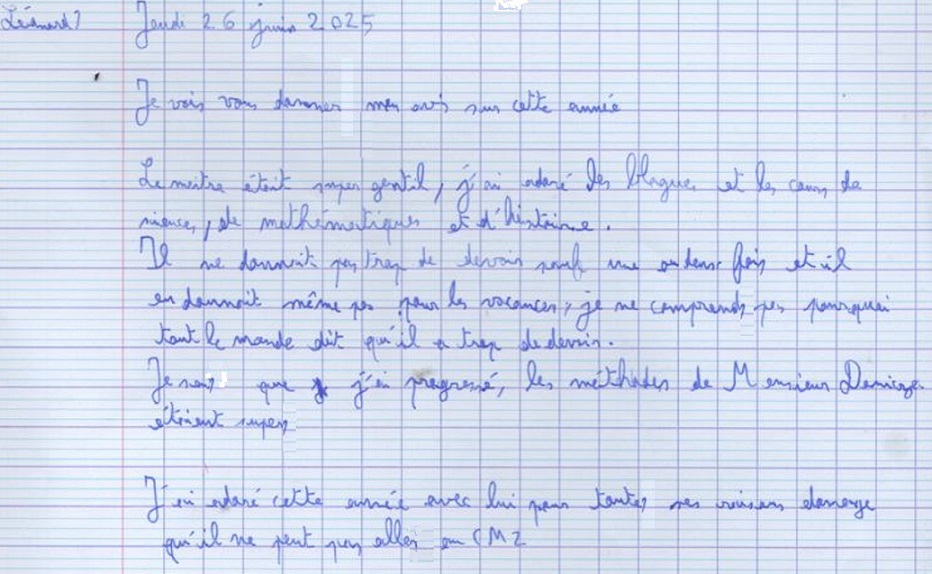 Léonard Jeudi 26 juin 2025
Je vais vous donner mon avis sur cette année
Le maitre était super gentil, j'ai adoré les blagues et les cours de
sciences, de mathématiques et d'histoire.
Il ne donnait pas trop de devoirs sauf une ou deux fois et il
en donnait même pas pour les vacances, je ne comprends pas pourquoi
tout le monde dit qu'il a trop de devoir.
Je sens que j'ai progressé, les méthodes de Monsieur
étaient super
J'ai adoré cette année avec lui pour toutes ses raisons
qu'il ne peut pas aller en CM2